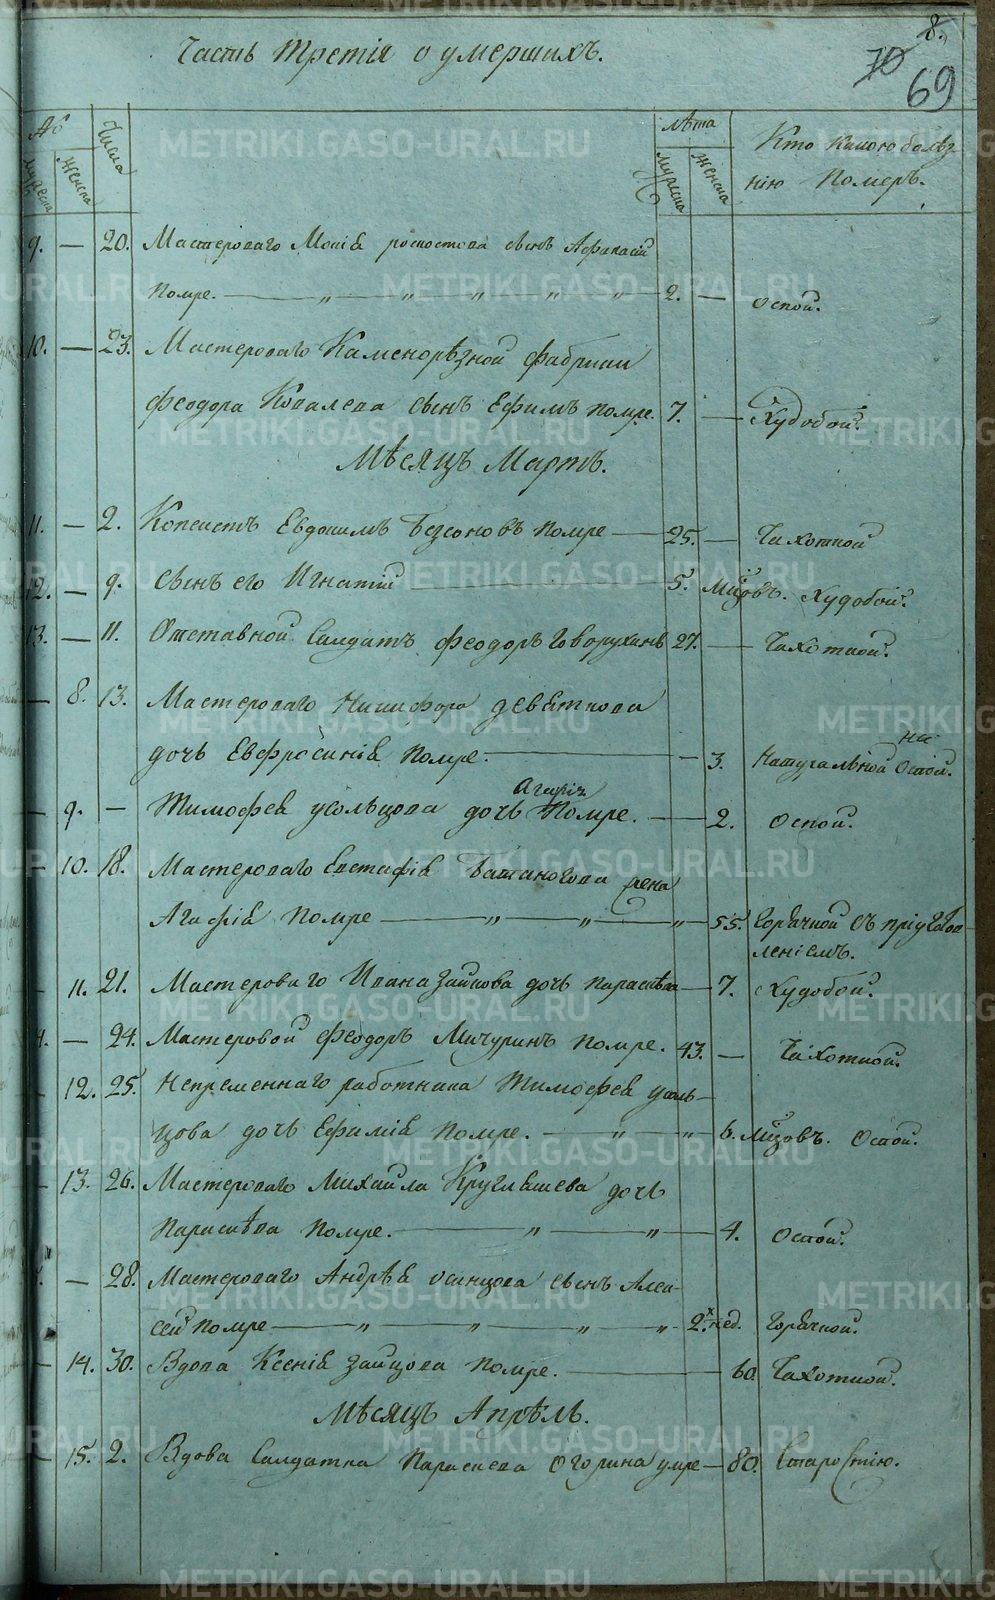 8.
70
69
Часть Третія о умершихъ.
№
Числа
Лѣта
Кто какою болѣз
мужеска
женска
мужеска
женска
нію Померъ.
9. — 20. Мастероваго Моисія сынъ Афанасій
помре. — 2. — Оспой.
10. — 23. Мастероваго Каменорѣзной фабрики
Феодора Ковалева сынъ Ефимъ помре. 7. — Худобой.
Мѣсяцъ Мартъ.
11. — 2. Копеистъ Евдокимъ Безсоновъ помре — 25. — Чахоткой
12. — 9. Сынъ его Игнатій 5. Мцовъ. Худобой.
13. — 11. Отставной Салдатъ Феодоръ Говорухинъ 27. — Чахоткой.
— 8. 13. Мастероваго Никифора девяткова
дочь Евфросинія помре. — 3. Натуральной Оспой.
— 9. — Тимофея усольцова дочь Помре. — 2. Оспой.
— 10. 18. Мастероваго Евстафія жена
Агафія помре — 55. Горячкой съ
леніемъ.
— 11. 21. Мастероваго Ивана Зайкова дочь параскева — 7. Худобой.
14. — 24. Мастеровой Феодоръ Мичуринъ помре. 43. — Чахоткой.
— 12. 25. Непременнаго работника Тимофея усоль-
цова дочь Ефимія помре. — 6. Мцовъ. Оспой.
— 13. 26. Мастероваго Михайла Круглышева дочь
параскева помре. — 4. Оспой.
— 28. Мастероваго Андрѣя осинцова сынъ Алек-
сей помре — 2.хъ нед. Горячкой.
— 14. 30. Вдова Ксенія Зайцова помре. — 60. Чахоткой.
Мѣсяцъ Апрѣль.
15. 2. Вдова Салдатка Параскева умре — 80. Старостію.
METRIKI.GASO-URAL.RU